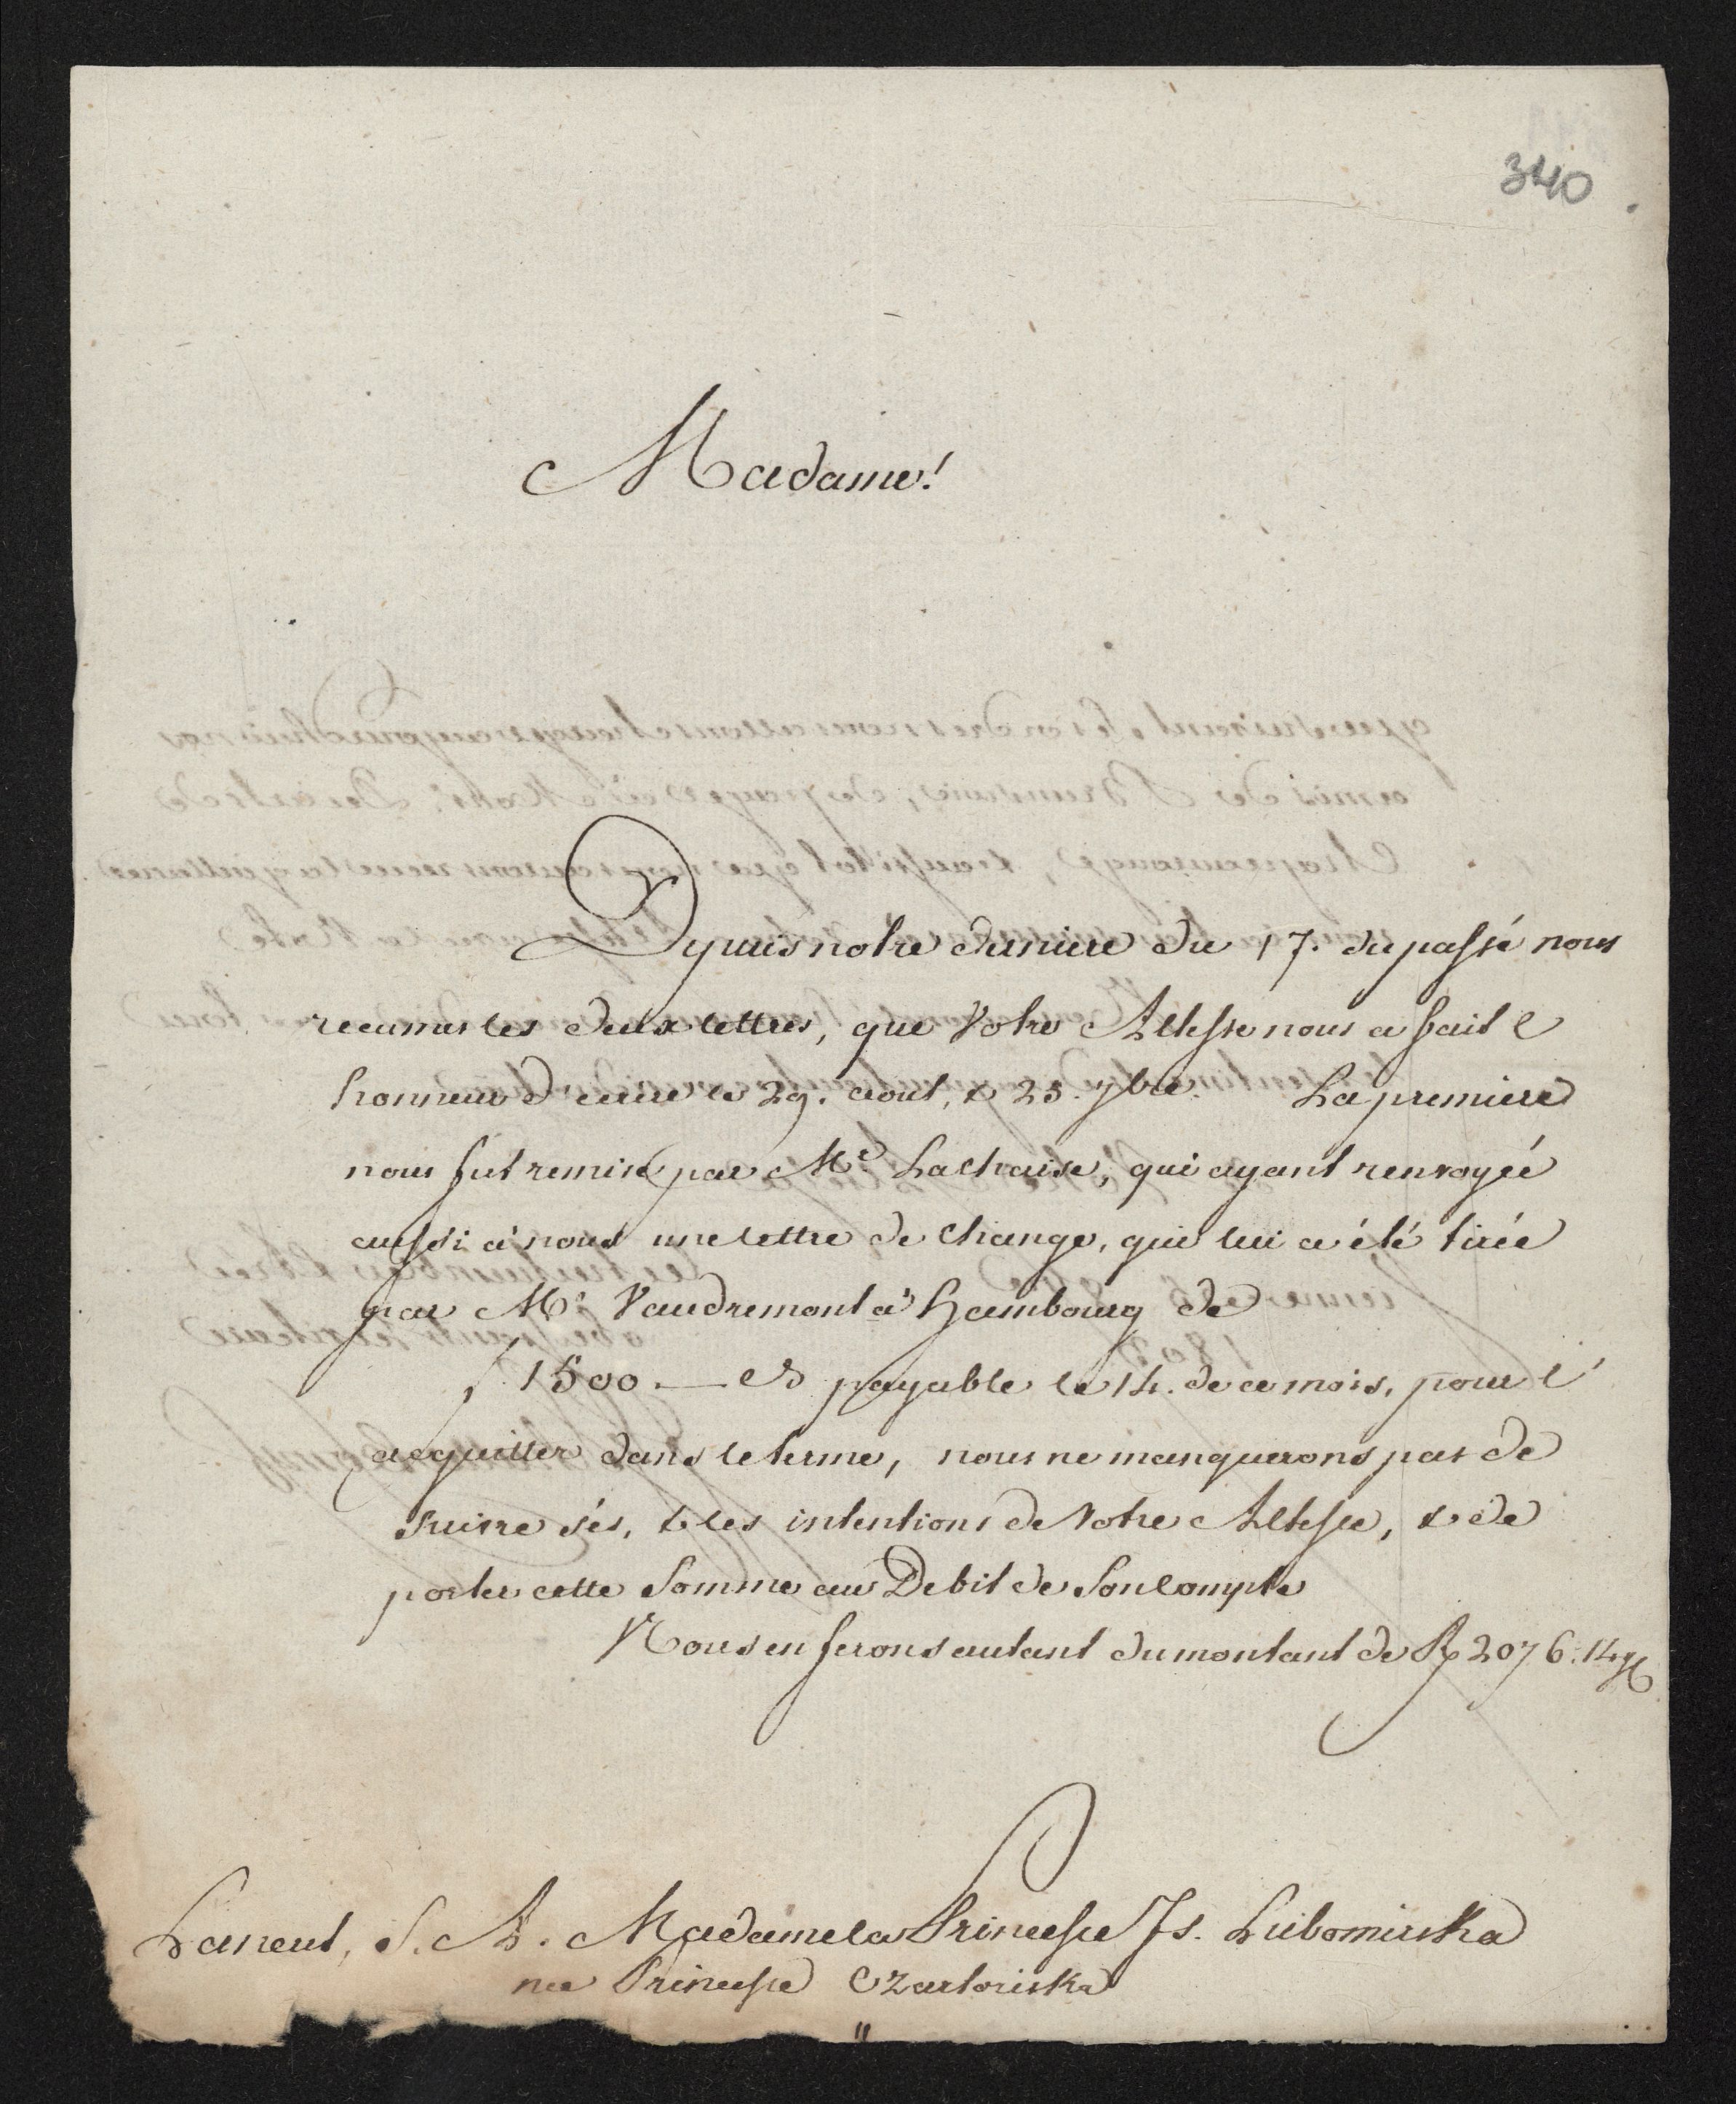 340
Madame!
Depuis notre derniere du 17. du passé nous
recumes les deux lettres, que Votre Altesse nous a fait l
honneur d'ecrire le 29. aout, & 25. 7bre. La premiere
nous fut remise par Mr. Lachaise, qui ayant renvoyée
aussi à nous une lettre de change, qui lui a été tirée
par Mr. Vaudremont à Hambourg de
f 1500.— payable le 14. de ce mois, pour l'
acquitter dans le terme, nous ne manquerons pas de
suivre sés, & les intentions de Votre Altesse, & de
porter cette Somme au Debit de Son Compte
Nous en ferons autant du montant de R 2076.14
Lancut, S. A. Madame la Princesse Is. Lubomirska
nee Princesse Czartoriska